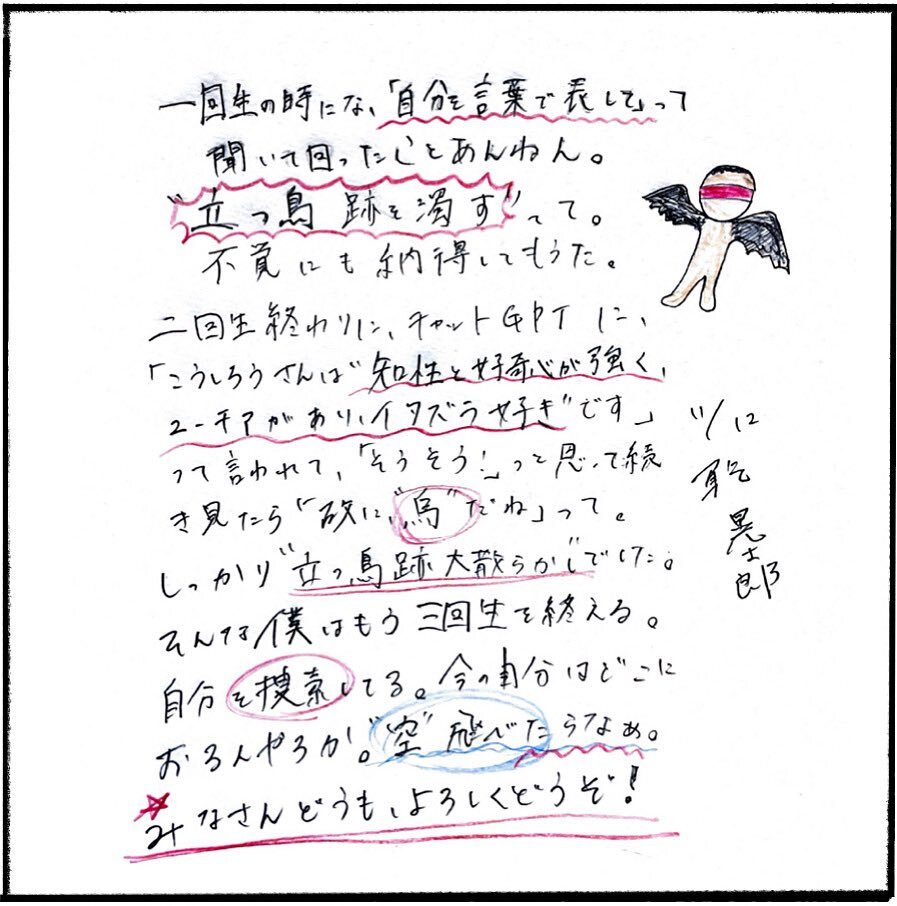 一回生の時にな、「自分を言葉で表して」って
聞いて回ったことあんねん。
"立つ鳥 跡を濁す"って。
不覚にも納得してもうた。
二回生終わりに、チャットGPTに、
「こうしろうさんは"知性と好奇心が強く、
ユーモアがあり、イタズラ好き"です」
って言われて、「そうそう！」って思って続
き見たら「故に、"鳥"だね」って。
しっかり"立つ鳥跡大散らかし"でした。
そんな僕はもう三回生を終える。
自分を捜索してる。今の自分はどこに
おるんやろか。"空"飛べたらなぁ。
みなさんどうも、よろしくどうぞ！
11/12
晃士郎